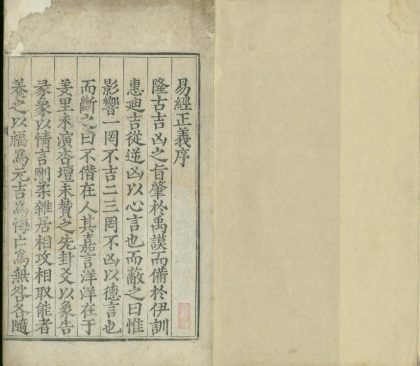 易經正義序
隆古吉凶之旨肇於禹謨而備於伊訓
惠迪吉從逆凶以心言也而敝之曰惟
影響一罔不吉二三罔不凶以德言也
而斷之曰不僭在人其嘉言洋洋在于
羑里未演杏壇未贊之先卦爻以象告
彖象以情言剛柔雜居相攻相取能者
養之以福爲元吉爲悔亡爲無咎各隨